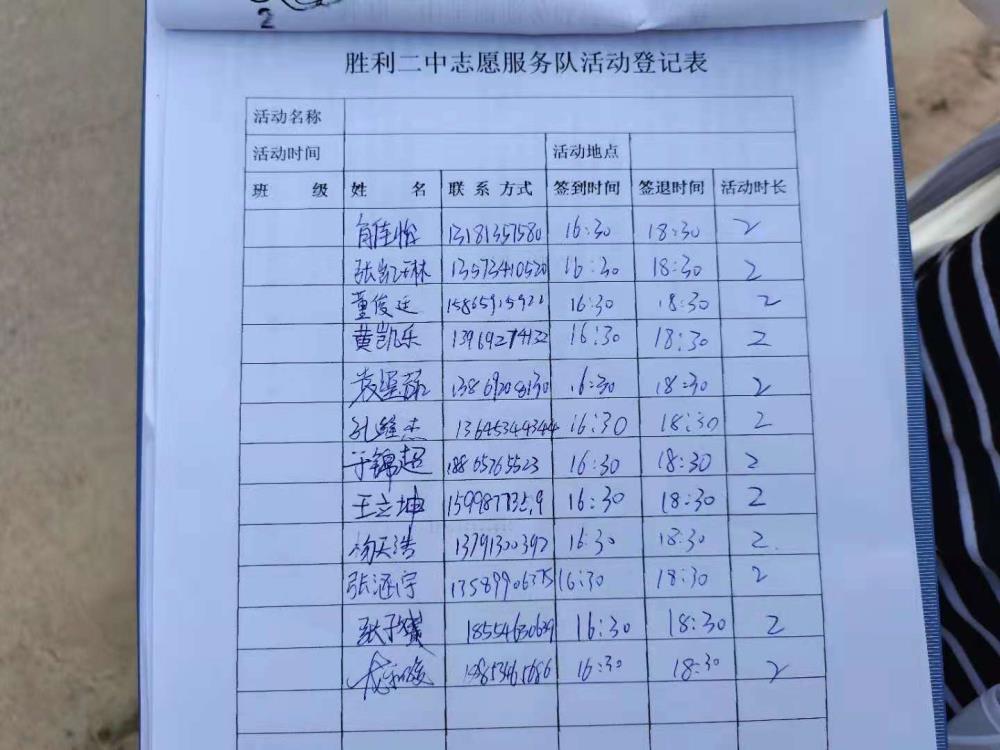 2
胜利二中志愿服务队活动登记表
活动名称
活动时间 活动地点
班 级 姓 名 联系方式 签到时间 签退时间 活动时长
肖佳怡 13181357580 16:30 18:30 2
张凯琳 13573410520 16:30 18:30 2
董俊廷 16:30 18:30 2
黄凯乐 13969274132 16:30 18:30 2
16:30 18:30 2
孔维杰 13645344344 16:30 18:30 2
于锦超 18865765523 16:30 18:30 2
王立坤 16:30 18:30 2
杨天浩 13791300392 16:30 18:30 2
张涵宇 13589906375 16:30 18:30 2
18554630639 16:30 18:30 2
16:30 18:30 2